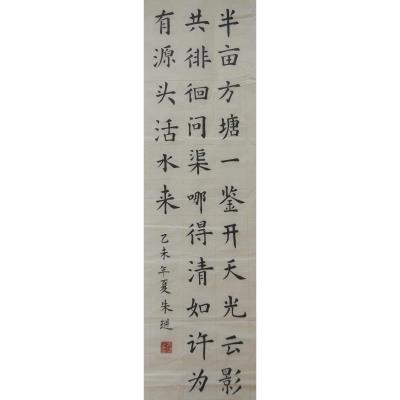 半亩方塘一鉴开天光云影
共徘徊问渠哪得清如许为
有源头活水来
乙未年夏朱